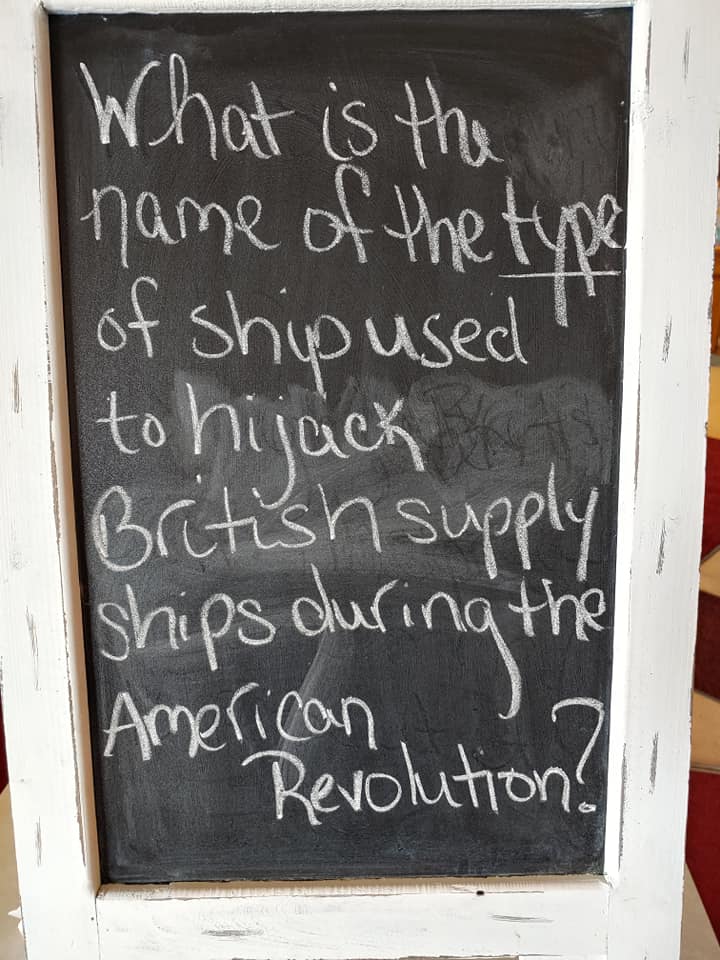 What is the
name of the type
of ship used
to hijack
British supply
ships during the
American
Revolution?